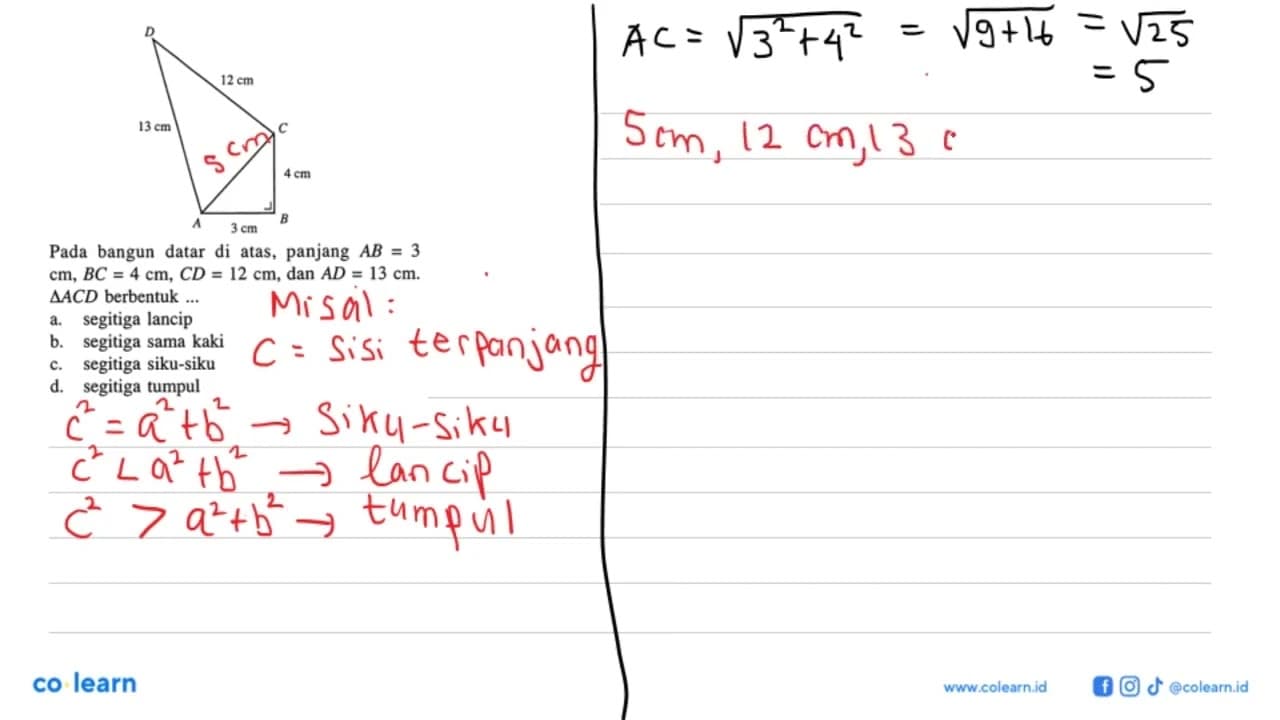 D
12 cm
13 cm
C
5 cm
4 cm
A
B
3 cm
Pada bangun datar di atas, panjang AB = 3
cm, BC = 4 cm, CD = 12 cm, dan AD = 13 cm.
ΔACD berbentuk ...
a. segitiga lancip
b. segitiga sama kaki
c. segitiga siku-siku
d. segitiga tumpul
Misal:
C = sisi terpanjang
c² = a² + b² → Siku-Siku
c² < a² + b² → lancip
c² > a² + b² → tumpul
AC = √3² + 4² = √9+16 = √25
= 5
5 cm, 12 cm, 13 c
co learn
www.colearn.id
@colearn.id